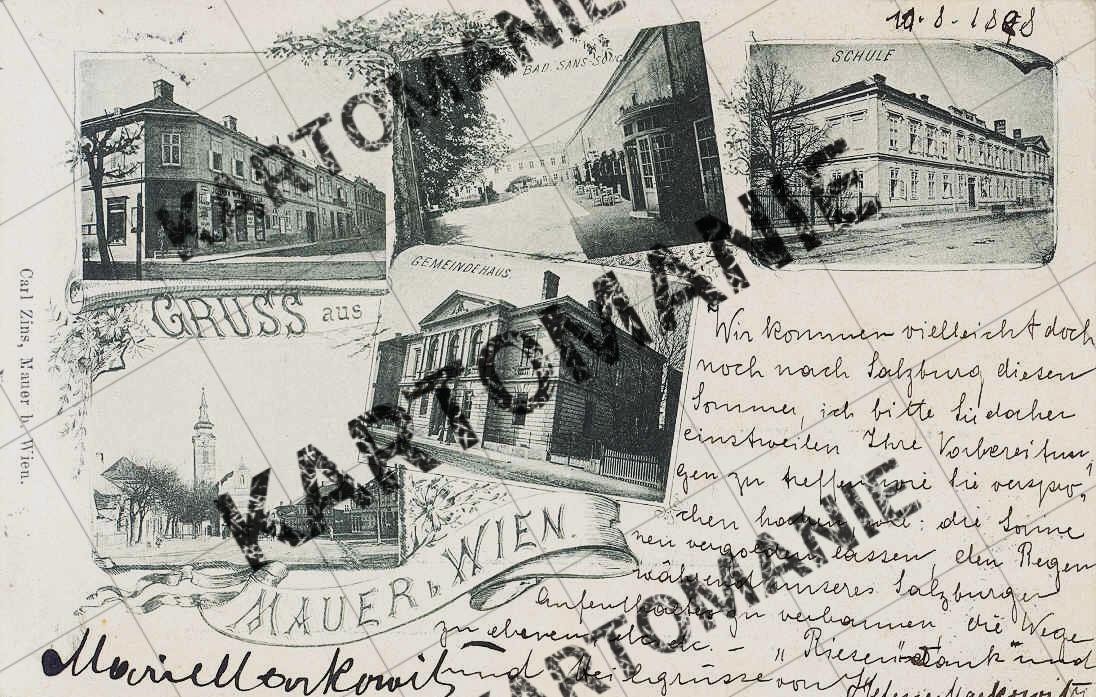 10.8.1898
BAD. SANS-SOUCI
SCHULE
GEMEINDEHAUS
GRUSS aus
MAUER b. WIEN.
Carl Zins, Mauer b. Wien.
Wir kommen vielleicht doch
noch nach Salzburg diesen
Sommer, ich bitte Sie daher
einstweilen Ihre Vorbereitun-
gen zu treffen wie Sie verspro-
chen haben : die Sonne
vergolden lassen, den Regen
während unseres Salzburger
Aufenthaltes zu verbannen, die Wege
zu ebenen etc. etc. – „Riesendank" und
und Heilgrüsse von
Marie Markowitz
KARTOMANIE
KARTOMANIE
KARTOMANIE
KARTOMANIE
KARTOMANIE